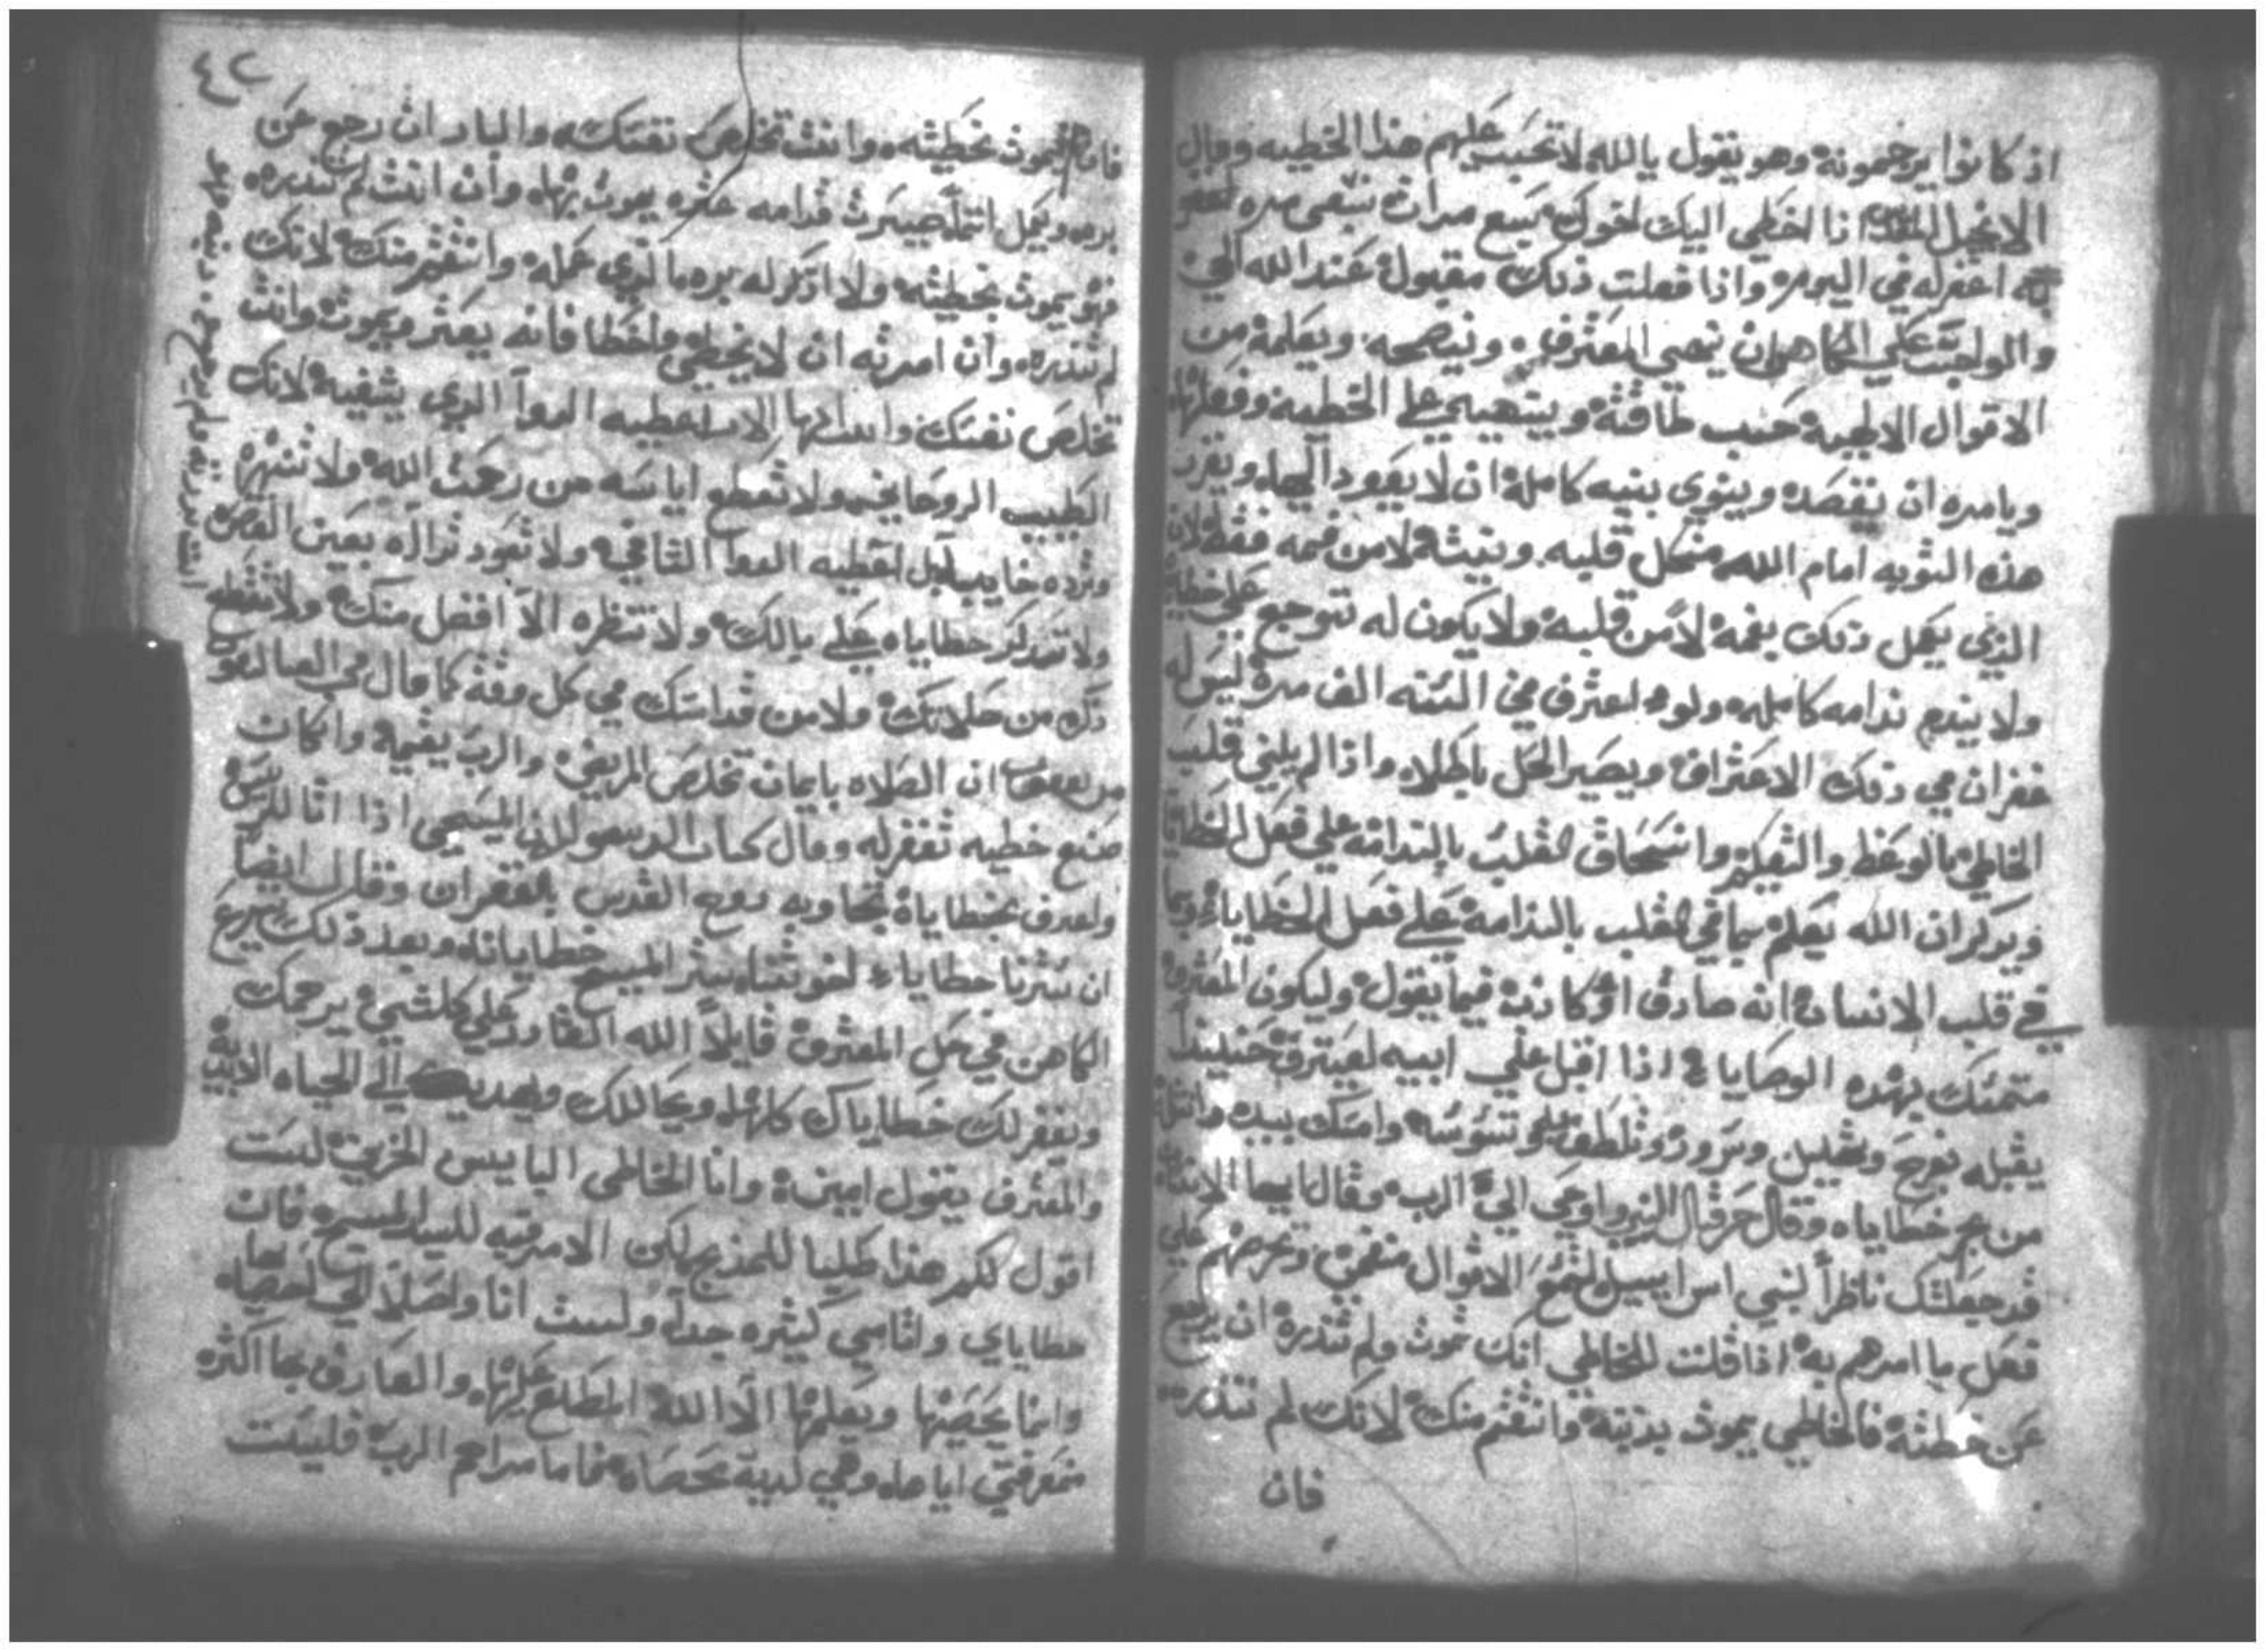 اذ كانوا يرجمونه وهو يقول يالله لا تحسب عليهم هذا الخطيه وقال
الانجيل المقدس اذا اخطي اليك اخوك سبع مرات سبعى مره اغفر
له اغفرله في اليوم واذا فعلت ذلك مقبول عند الله الحي
والواجب علي الكاهن ان ينهي المعترف وينصحه ويعلمه من
الاقوال الالهية حسب طاقته وينهيه علي الخطيه وفعلها
ويامره ان يقصد وينوي بنيه كاملة ان لا يعود اليها ويقرب
هذه التوبه امام الله من كل قلبه ونيته لا من فمه فقط لان
الذي يعمل ذلك بفمه لا من قلبه ولا يكون له توجع على خطيته
ولا يندم ندامه كامله ولو اعترف في السنه الف مرة ليس له
غفران في ذلك الاعتراف ويصير الحل باطلا واذا لم يلين قلب
الخاطي بالوعظ والتعليم وانسحاق القلب بالندامه علي فعل الخطايا
ويدكر ان الله يعلم بما في القلب بالندامة علي فعل الخطايا وبما
في قلب الانسان انه صادق او كاذب فيما يقول وليكون المعترف
متمسك بهذه الوصايا اذا اقبل علي ابيه ليعترف حينيذ
يقبله بفرح وتهليل وسرور وتلطف وامسك بيده وانتله
من بحر خطاياه وقال حزقيال النبي اوحي الي الرب وقال يايها الانسان
قد جعلتك ناظرا لبني اسراييل لتسمع الاقوال من فمي وتحرصهم علي
فعل ما امرهم به اذا قلت للخاطي انك تموت ولم تنذره ان يرجع
عن خطيته فالخاطي يموت بذنبه وانتقم منك لانك لم تنذره
فان
فانه يموت بخطيته وانت تخلص نفسك والبار ان رجع عن
بره ويعمل اثما صيرت قدامه عثره يموت بها وان انت لم تنذره
فهو يموت بخطيته ولا اذكر له بره الذي عمله وانتقم منك لانك
لم تنذره وان امرته ان لا يخطي واخطا فانه يعثر ويموت وانت
تخلص نفسك وانت ايها الاب اعطيه الدوا الدي يشفيه لانك
الطبيب الروحاني ولا تقطع اياسه من رحمت الله ولا تنهره
وترده خايب بل اعطيه الدوا الشافي ولا تعود تراه بعين النقص
ولا تتدكر خطاياه علي بالك ولا تنظره الا افضل منك ولا تنقطه
ذلك من صلاتك ولا من قداسك في كل وقت كما قال في القتاليقون
من يعقوب ان الصلاه بايمان تخلص المريض والرب يقيمه وان كان
صنع خطيه تغفر له وقال كتاب الرسول ان المسيحي اذا اتا للقسيس
واعترف بخطاياه تجاوبه روح القدس بالغفران وقال ايضا
ان سترنا خطاياء اخوتنا يستر المسيح خطايانا وبعد ذلك يشرع
الكاهن في حل المعترف قايلا الله القادر علي كلشي يرحمك
ويغفر لك خطاياك كلها ويحاللك ويهديك الي الحياه الابديه
والمعترف يقول امين وانا الخاطي البايس الحزين لست
اقول لكم هذا كليا للمديح لكن الامر فيه للسيد المسيح فان
خطاياي واثامي كثيره جدا ولست انا واصلا الي احصاء
وانما يحصيها ويعلمها الا الله المطلع عليها والعارف بها اكثر
من معرفتي اياها وهي لديه محصاه فاما مراحم الرب فليست